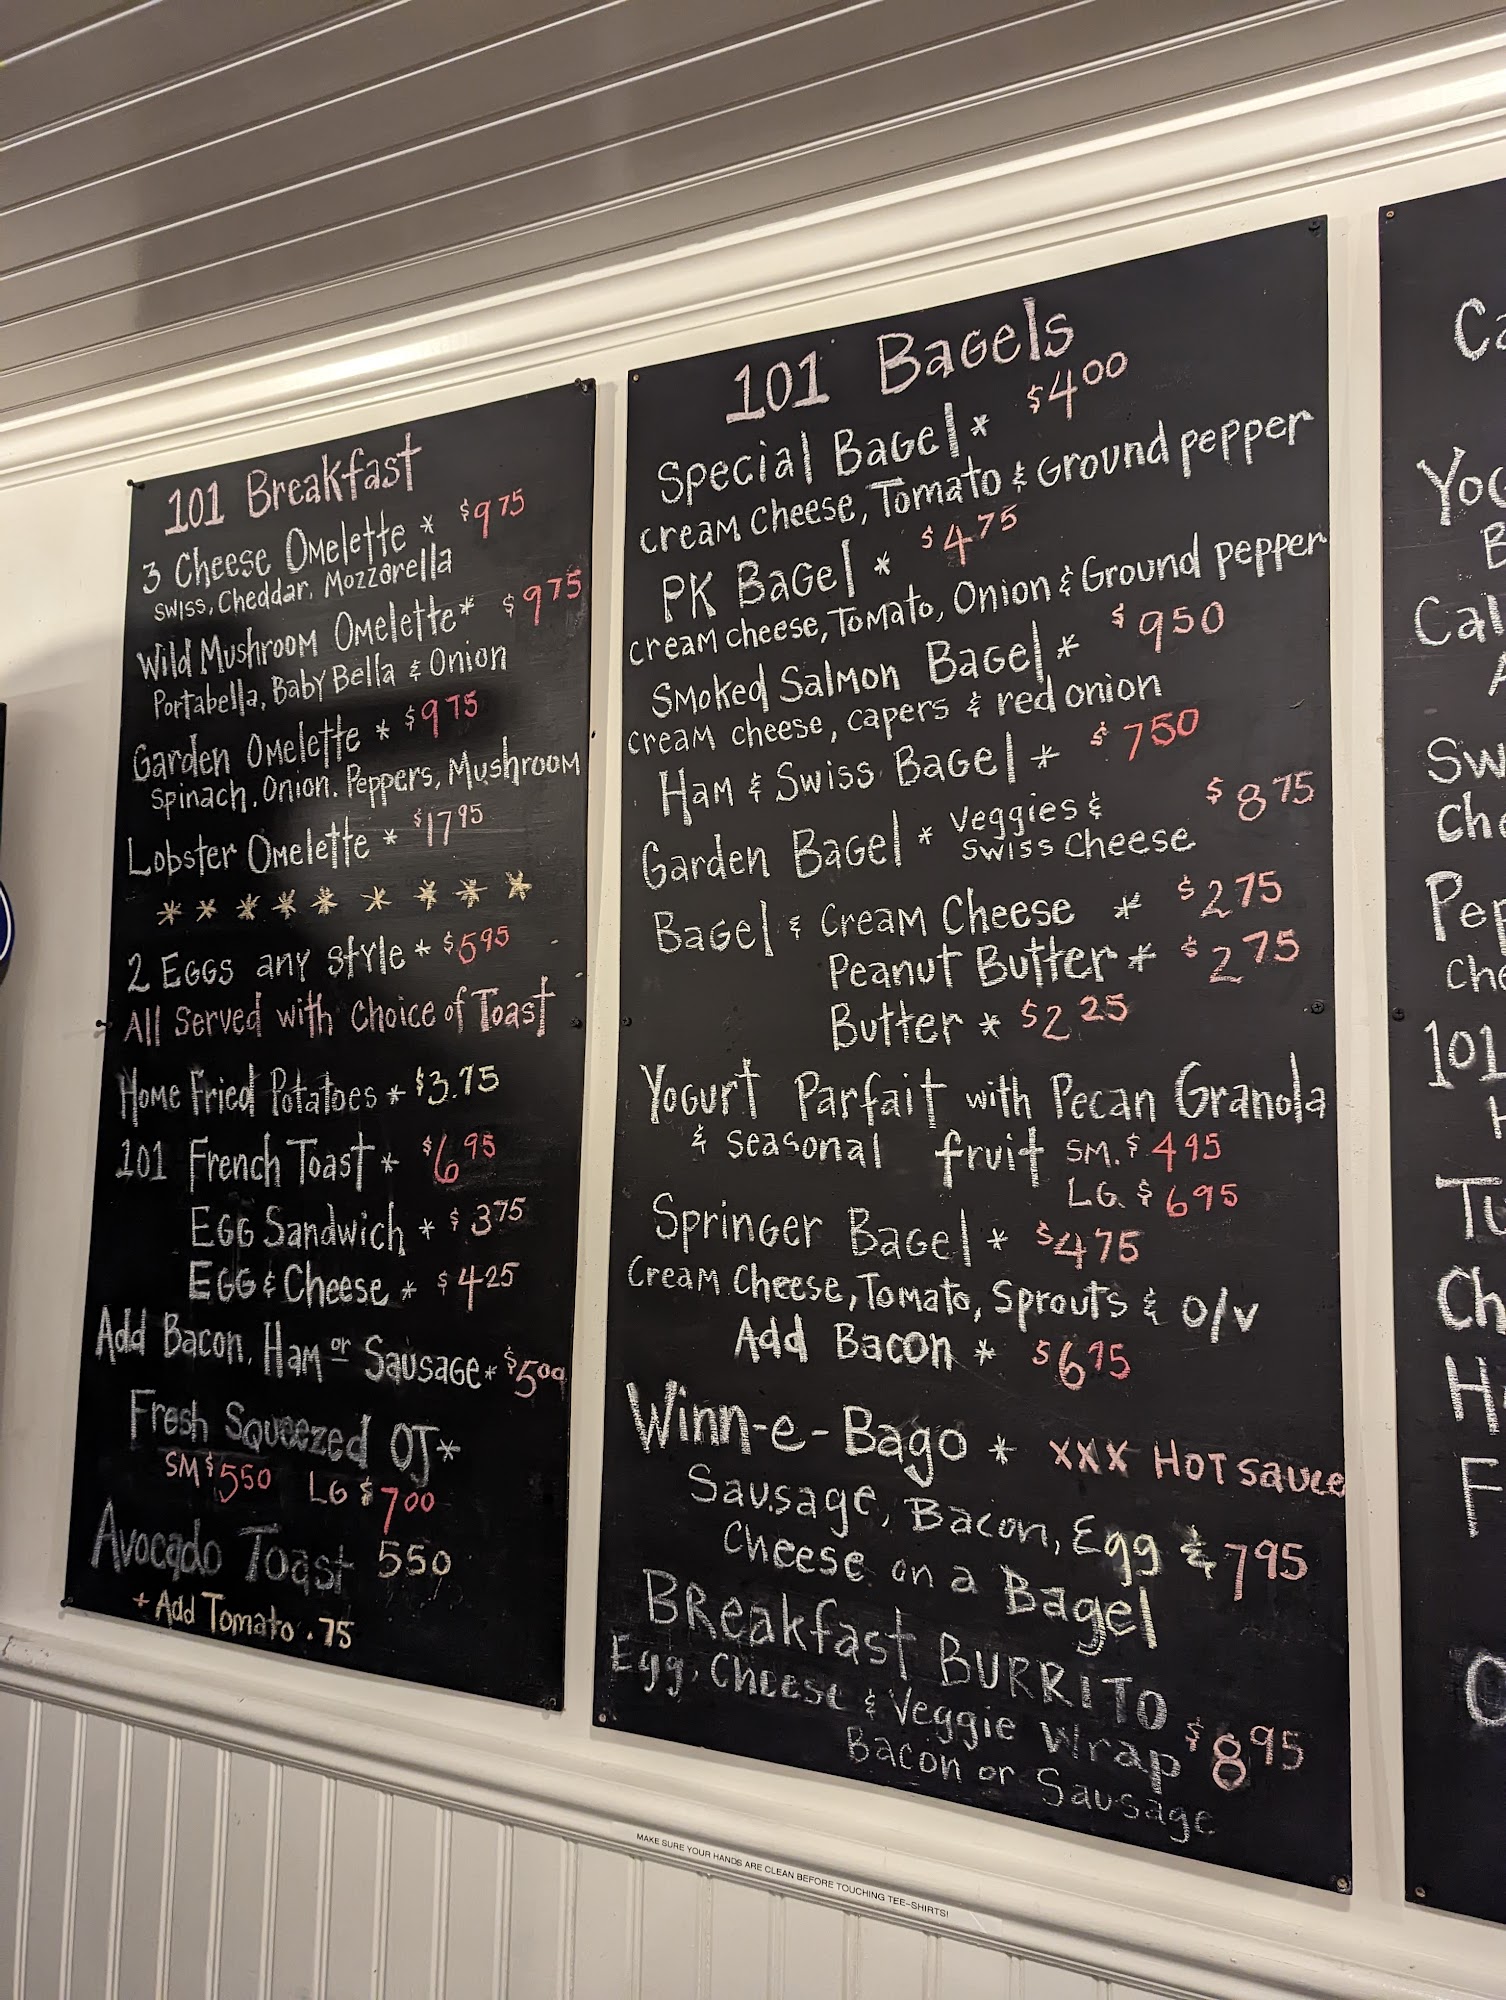 101 Breakfast
3 Cheese Omelette * $9.75
Swiss, Cheddar, Mozzarella
Wild Mushroom Omelette * $9.75
Portabella, Baby Bella & Onion
Garden Omelette * $9.75
Spinach, Onion, Peppers, Mushroom
Lobster Omelette * $17.95
* * * * * * * * *
2 Eggs any style * $5.95
All Served with Choice of Toast
Home Fried Potatoes * $3.75
101 French Toast * $6.95
Egg Sandwich * $3.75
Egg & Cheese * $4.25
Add Bacon, Ham or Sausage * $5.00
Fresh Squeezed OJ *
SM $5.50 LG $7.00
Avocado Toast 5.50
+ Add Tomato .75
101 Bagels
Special Bagel * $4.00
cream cheese, Tomato & Ground pepper
PK Bagel * $4.75
cream cheese, Tomato, Onion & Ground pepper
Smoked Salmon Bagel * $9.50
cream cheese, capers & red onion
Ham & Swiss Bagel * $7.50
Garden Bagel * Veggies & Swiss Cheese $8.75
Bagel & Cream Cheese * $2.75
Peanut Butter * $2.75
Butter * $2.25
Yogurt Parfait with Pecan Granola
& Seasonal fruit SM. $4.95
LG. $6.95
Springer Bagel * $4.75
Cream Cheese, Tomato, Sprouts & o/v
Add Bacon * $6.75
Winn-e-Bago * XXX Hot Sauce
Sausage, Bacon, Egg &
Cheese on a Bagel 7.95
Breakfast BURRITO
Egg, Cheese & Veggie Wrap $8.95
Bacon or Sausage
MAKE SURE YOUR HANDS ARE CLEAN BEFORE TOUCHING TEE-SHIRTS!
101